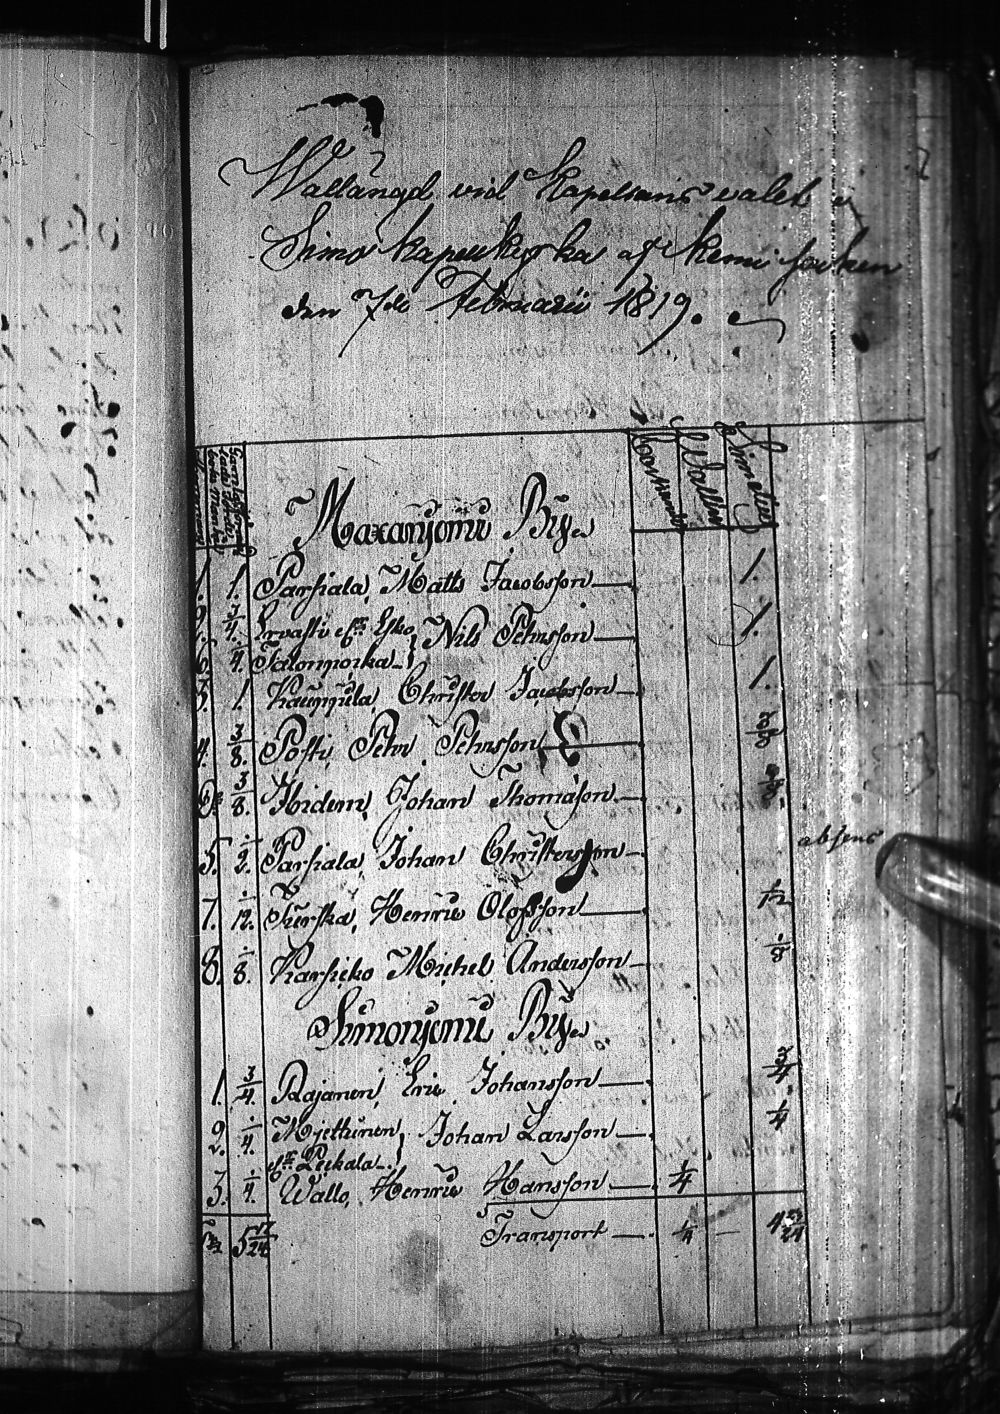 Wallängd vid Kapelsans valet i
Simo kapell kyrka af Kemi socken
den 7de Februarii 1819.
Wallin Simelius
Maxaniomi By
1. 1. Parsiala, Matts Jacobsson
2. 3/4. Ervasti eft Esko Nils Petersson 1.
1/4. Talonpoika
3. 1. Kauppila Christer Jacobsson 1.
4. 3/8. Posti, Petter Pettersson 3/8
3/8. Hidem, Johan Thomasson 3/8.
5. 1/2. Parsiala, Johan Christersson absens
7. 1/12. Turska, Henric Olofsson 1/12
8. 1/8. Karsicko Michel Andersson 1/8
Simoniemi By
1. 3/4. Rajanen, Eric Johansson 3/4.
2. 1/4. Mjethinen, Johan Larsson 1/4
eft Leskala
3. 1/4. Wallo, Henric Hansson 1/4
5 17/24 Transport 1/4 4 23/24